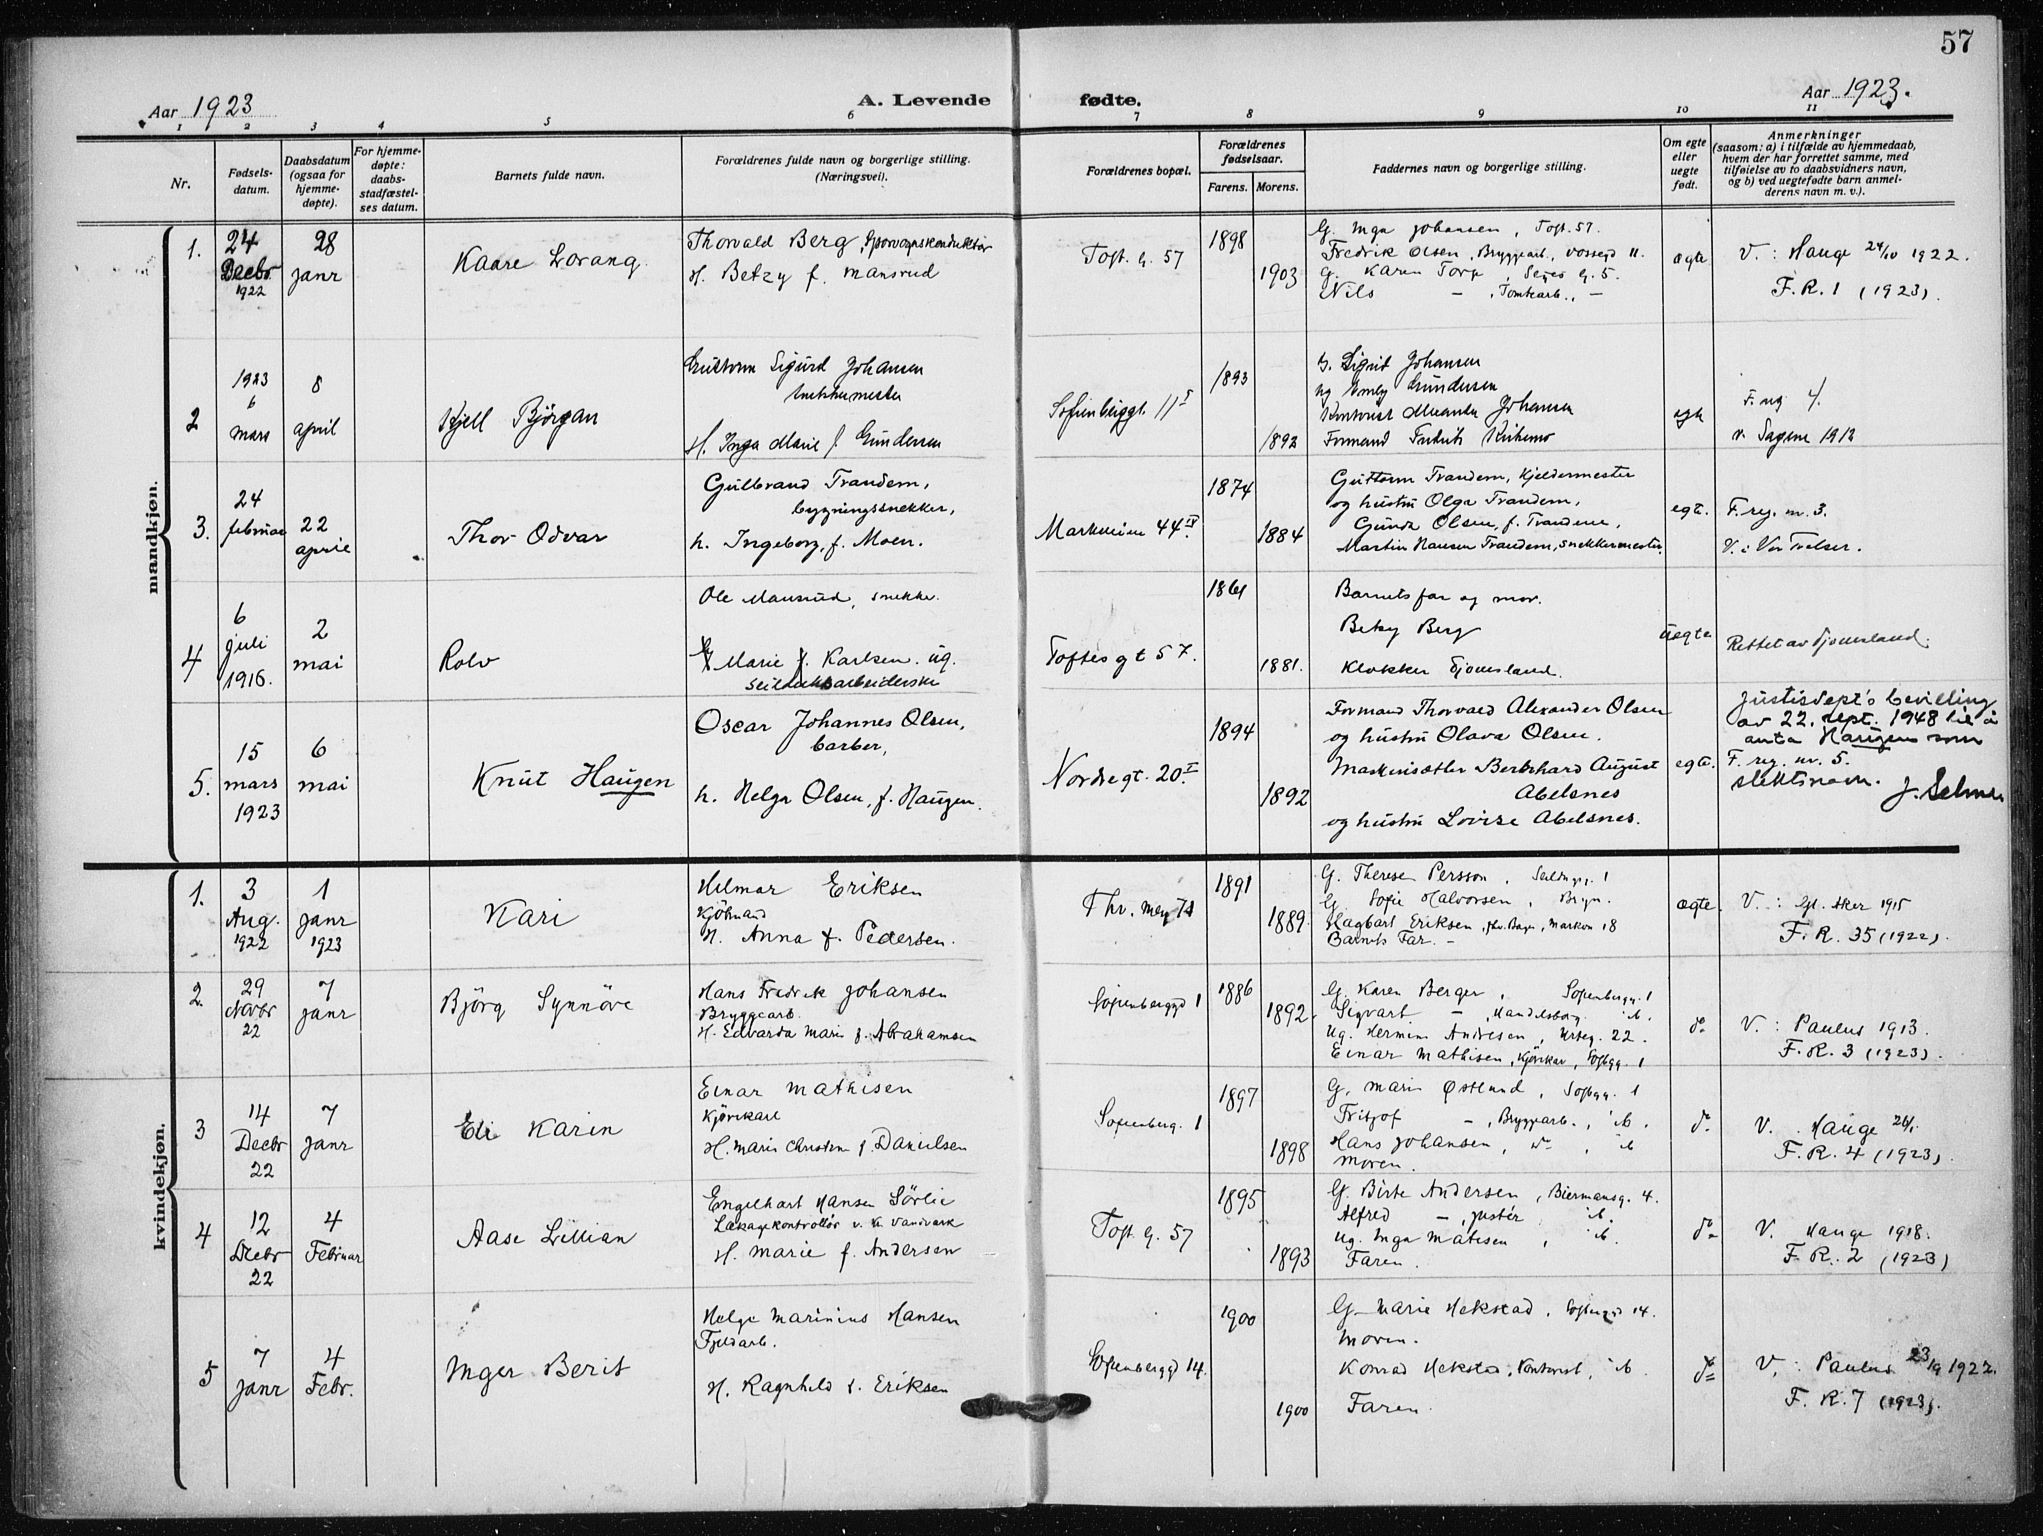 57
Aar 1923
A. Levende fødte.
Aar 1923.
1 2 3 4 5 6 7 8 9 10 11
Nr.
Fødsels-
datum.
Daabsdatum
(ogsaa for
hjemme-
døpte).
For hjemme-
døpte:
daabs-
stadfæstel-
ses datum.
Barnets fulde navn.
Forældrenes fulde navn og borgerlige stilling.
(Næringsvei).
Forældrenes bopæl.
Forældrenes
fødselsaar.
Farens. Morens.
Faddernes navn og borgerlige stilling.
Om egte
eller
uegte
født.
Anmerkninger
(saasom: a) i tilfælde av hjemmedaab,
hvem der har forrettet samme, med
tilføielse av to daabsvidners navn,
og b) ved uegtefødte barn anmel-
derens navn m. v.).
mandkjøn.
1.
24
Decbr
1922
28
janr
Kaare Lorang
Thorvald Berg, Sporvognskonduktør
H. Betzy f. Mansrud
Toft. G. 57
1898
1903
G. Inga Johansen, Toft. 57.
Fredrik Olsen, Bryggearb., Vossegd 11.
G. Karen Torp, G. 5.
Nils — , Tomtearb., —
ægte
V. : Hauge 24/10 1922.
F. R. 1 (1923).
2
1923
6
mars
8
april
Kjell Björgan
Guttorm Sigurd Johansen
snekkermester
H. Inga Marie f Gundersen
Sofienberggt. 11 I
1893
1892
G. Sigrid Johansen
Ug Emly Gundersen
Kontorist Johansen
Formand Fredrik
egte
F. reg 4.
v. Sagene 1912
3.
24
februar
22
april
Thor Odvar
Gulbrand Trandem,
bygningssnekker,
h. Ingeborg, f. Moen.
Markveien 44 IV
1874
1884
Guttorm Trandem, Kjeldermester
og hustru Olga Trandem,
Gunda Olsen, f. Trandem,
Martin Hansen Trandem, snekkermester.
egte.
F. reg. nr. 3.
V. i Vor Frelser.
4
6
juli
1916.
2
mai
Rolv
Ole Mansrud, snekker.
Marie f. Karlsen. ug.
Toftes gt 57.
1861
1881.
Barnets far og mor.
Betzy Berg
Klokker Tjomsland.
uegte
Rettet av Tjomsland.
5.
15
mars
1923
6
mai
Knut Haugen
Oscar Johannes Olsen,
barber,
h. Helga Olsen, f. Haugen.
Nordregt. 20 I
1894
1892
Formand Thorvald Alexander Olsen
og hustru Olava Olsen.
Maskinsætter Bernhard August
Abelsnes
og hustru Lovise Abelsnes.
egte.
Justisdept's bevilling
av 22. sept. 1948 til å
anta Haugen som
F. reg. nr. 5.
slektsnavn. J. Selmer
kvindekjøn.
1.
3
Aug.
1922
1
janr
1923
Kari
Hilmar Eriksen
Kjöbmand
H. Anna f. Pedersen.
Thv. Mey 71
1891
1889.
G. Therese Persson, 1
G. Sofie Halvorsen,
Hagbart Eriksen, Markvn 18
Barnets Far. —
ægte
V. : Gl. Aker 1915
F. R. 35 (1922).
2
29
Novbr
22
7
janr
Björg Synnöve
Hans Fredrik Johansen
Bryggearb.
H. Edvarda Marie f. Abrahamsen
Sofienberggd 1
1886
1892.
G. Karen Berger, Sofienbergg. 1
Sigvart — , Handelsborg. ib.
Ug. Hermine Andresen, Urteg. 22.
Einar Mathisen, Kjörekar, Sofbgg. 1
do
V. : Paulus 1913.
F. R. 3 (1923).
3
14
Decbr
22
7
janr
Eli Karin
Einar Mathisen
Kjörekarl
H. Marie Christine f. Danielsen
Sofienberg. 1
1897
1898
G. Marie Østlund, Sofbgg. 1
Fritjof — , Bryggearb., ib.
Hans Johansen, do , ib
Moren.
do
V. Hauge
F. R. 4 (1923).
4
12
Decbr
22
4
Februar
Aase Lillian
Engelhart Hansen Sörlie
Lækagekontrollör v. Kr Vandværk
H. Marie f. Andersen
Toft G. 57
1895
1893
G. Birte Andersen, Biermansg. 4.
Alfred — , justér ib.
Ug. Inga Matisen, ib.
Faren.
do
V. Hauge 1918.
F. R. 2 (1923)
5
7
janr
4
Febr.
Inger Berit
Helge Marinius Hansen
Fjeldarb.
H. Ragnhild f. Eriksen
Sofienberggd 14.
1900
1900
G. Marie Hekstad, 14.
Moren.
Konrad Hekstad, Kontorist, ib
Faren.
do
V. : Paulus 1922.
F. R. 7 (1923).